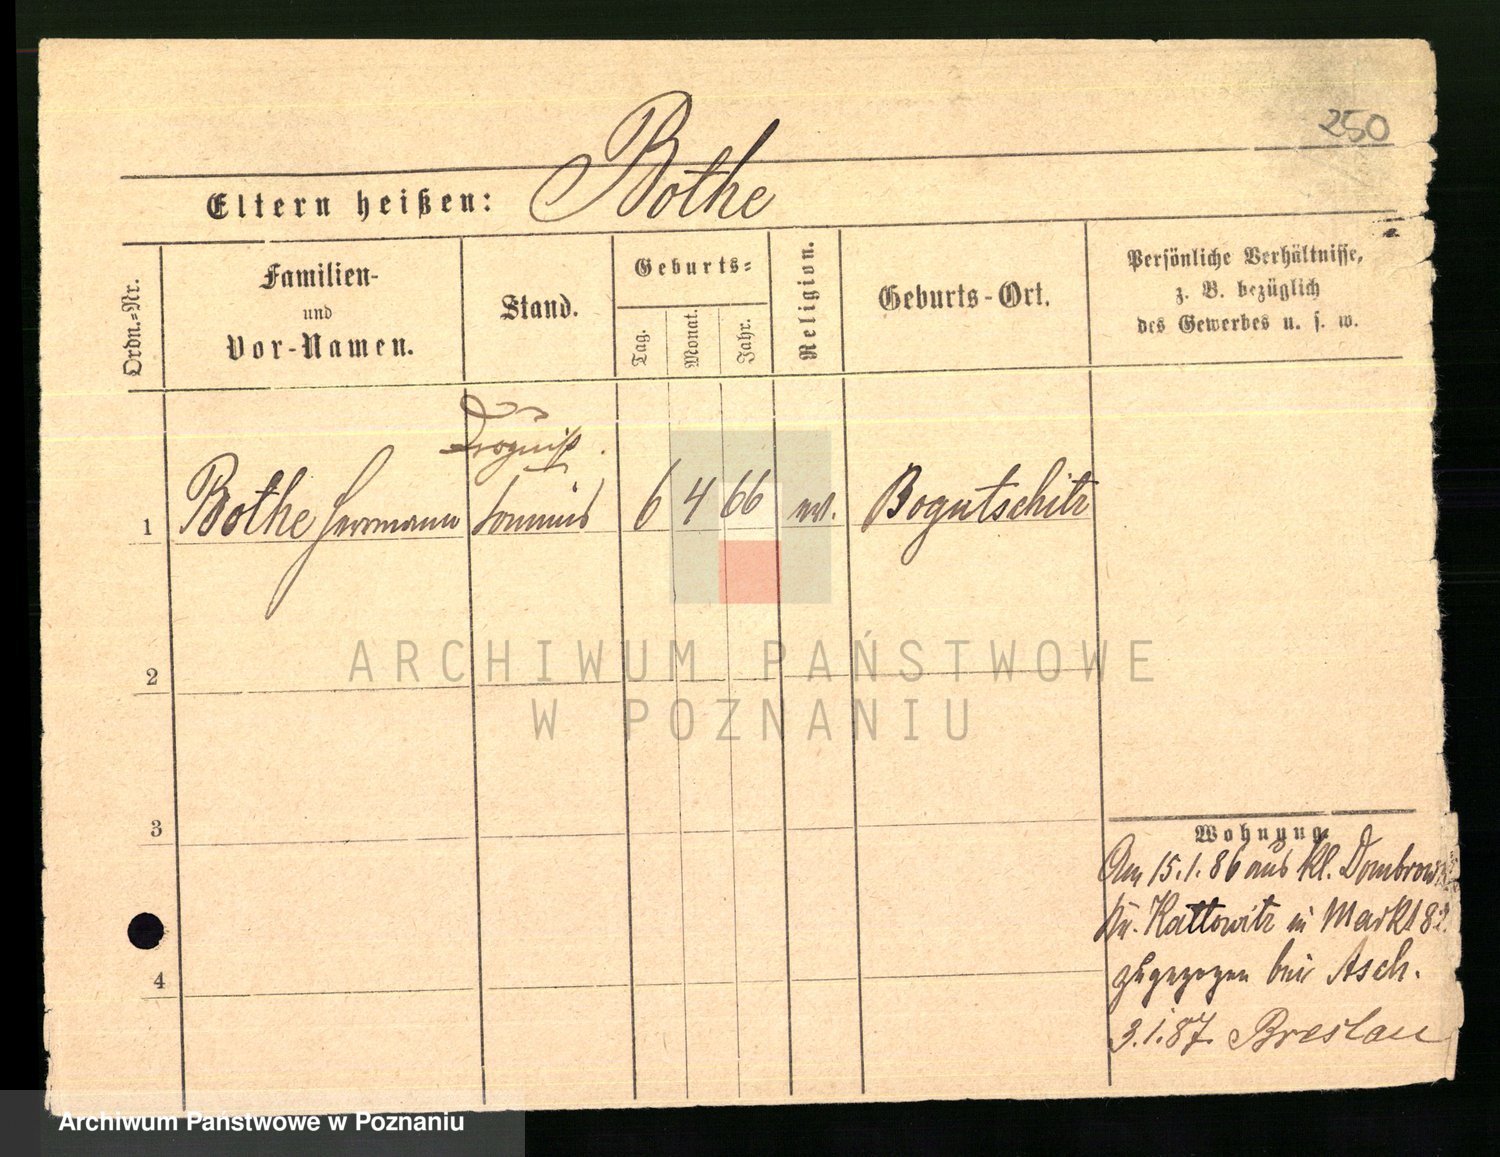 250
Eltern heißen: Bothe
Ordn.-Nr.
Familien-
und
Vor-Namen.
Stand.
Geburts-
Tag.
Monat.
Jahr.
Religion.
Geburts-Ort.
Persönliche Verhältnisse,
z. B. bezüglich
des Gewerbes u. s. w.
1 Bothe Herrmann Commis 6 4 66 ev. Bogutschitz
2
3
4
ARCHIWUM PAŃSTWOWE
W POZNANIU
Wohnung.
Am 15.1.86 aus Kl. Dombrow
Kr. Kattowitz in Markt 82
zugezogen bei Asch.
3.1.87. Breslau
Archiwum Państwowe w Poznaniu